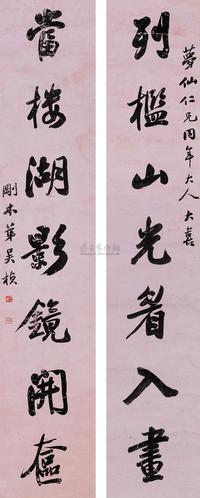 夢仙仁兄同年大人大喜
列檻山光看入畫
當樓湖影鏡開奩
剛木弟吳楨